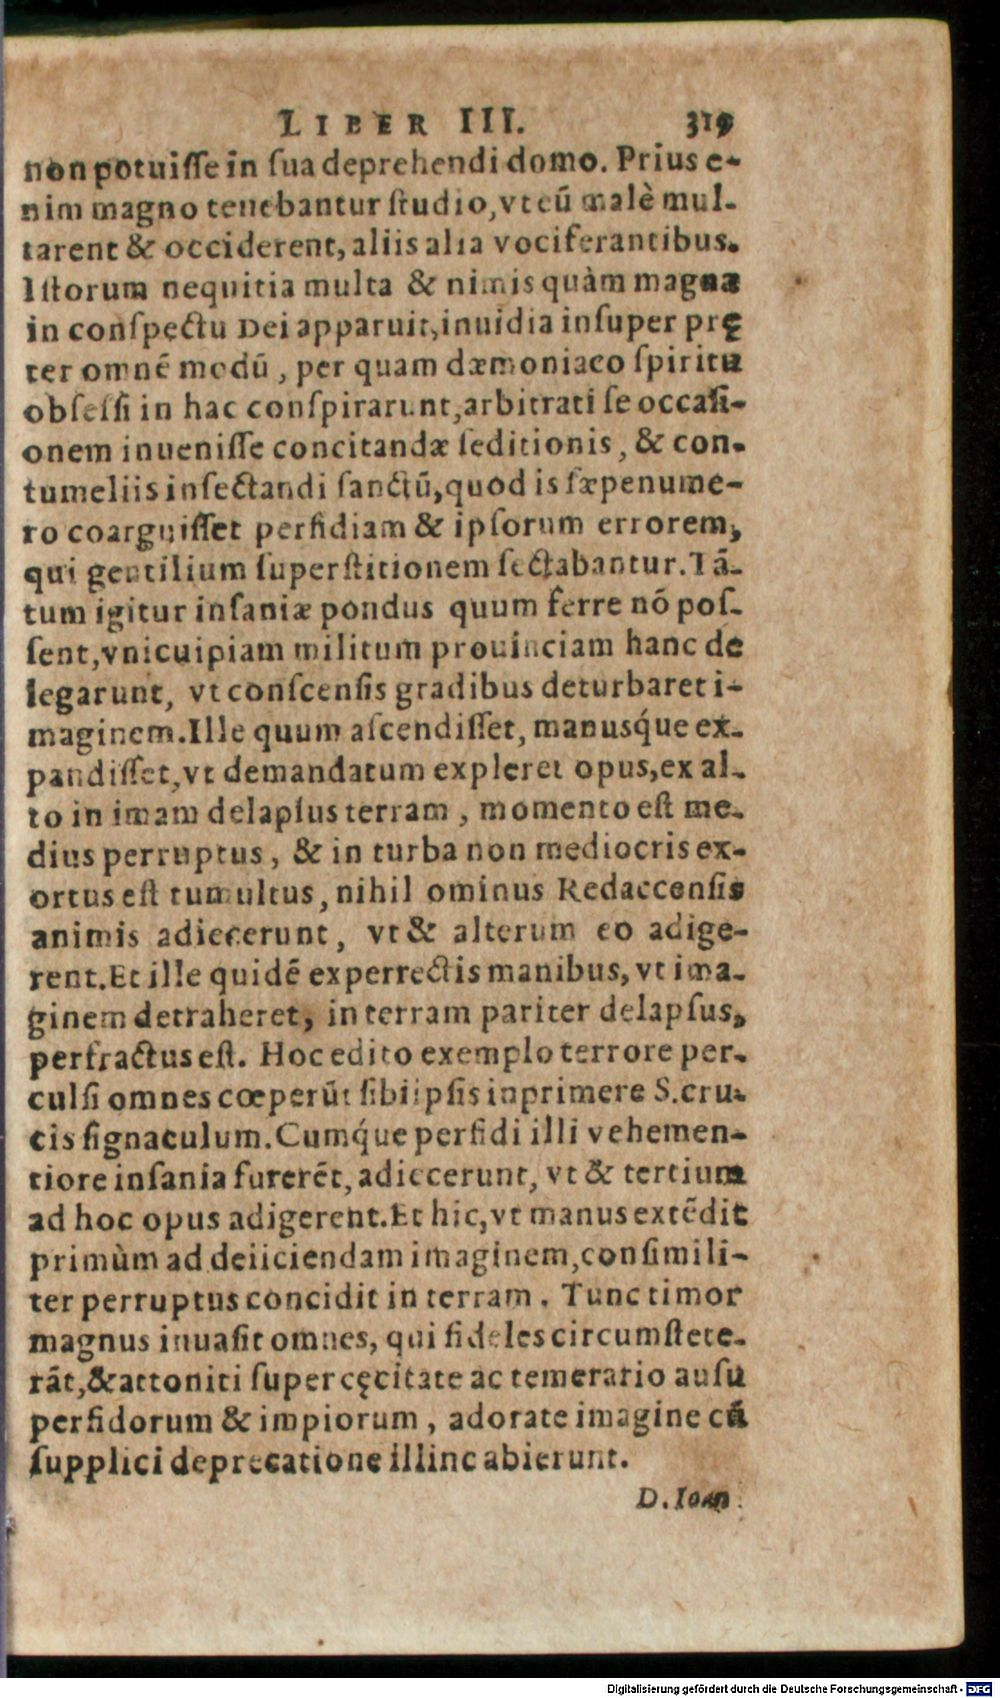 LIBER III. 319
non potuisse in sua deprehendi domo. Prius e-
nim magno tenebantur studio, vt eũ malè mul-
tarent & occiderent, aliis alia vociferantibus.
Istorum nequitia multa & nimis quàm magna
in conspectu Dei apparuit, inuidia insuper prę
ter omnẽ modũ, per quam dæmoniaco spiritu
obsessi in hac conspirarunt, arbitrati se occasi-
onem inuenisse concitandæ seditionis, & con-
tumeliis insectandi sanctũ, quod is sæpenume-
ro coarguisset perfidiam & ipsorum errorem,
qui gentilium superstitionem sectabantur. Tã-
tum igitur insaniæ pondus quum ferre nõ pos-
sent, vnicuipiam militum prouinciam hanc de
legarunt, vt conscensis gradibus deturbaret i-
maginem. Ille quum ascendisset, manusq́ue ex-
pandisset, vt demandatum expleret opus, ex al-
to in imam delapsus terram, momento est me-
dius perruptus, & in turba non mediocris ex-
ortus est tumultus, nihil ominus Redaccensis
animis adiecerunt, vt & alterum eo adige-
rent. Et ille quidẽ experrectis manibus, vt ima-
ginem detraheret, in terram pariter delapsus,
perfractus est. Hoc edito exemplo terrore per-
culsi omnes cœperũt sibiipsis inprimere S. cru-
cis signaculum. Cumq́ue perfidi illi vehemen-
tiore insania furerẽt, adiecerunt, vt & tertium
ad hoc opus adigerent. Et hic, vt manus extẽdit
primùm ad deiiciendam imaginem, consimili-
ter perruptus concidit in terram. Tunc timor
magnus inuasit omnes, qui fideles circumstete-
rãt, & attoniti super cęcitate ac temerario ausu
perfidorum & impiorum, adorate imagine cũ
supplici deprecatione illinc abierunt.
D. Ioan
Digitalisierung gefördert durch die Deutsche Forschungsgemeinschaft - DFG